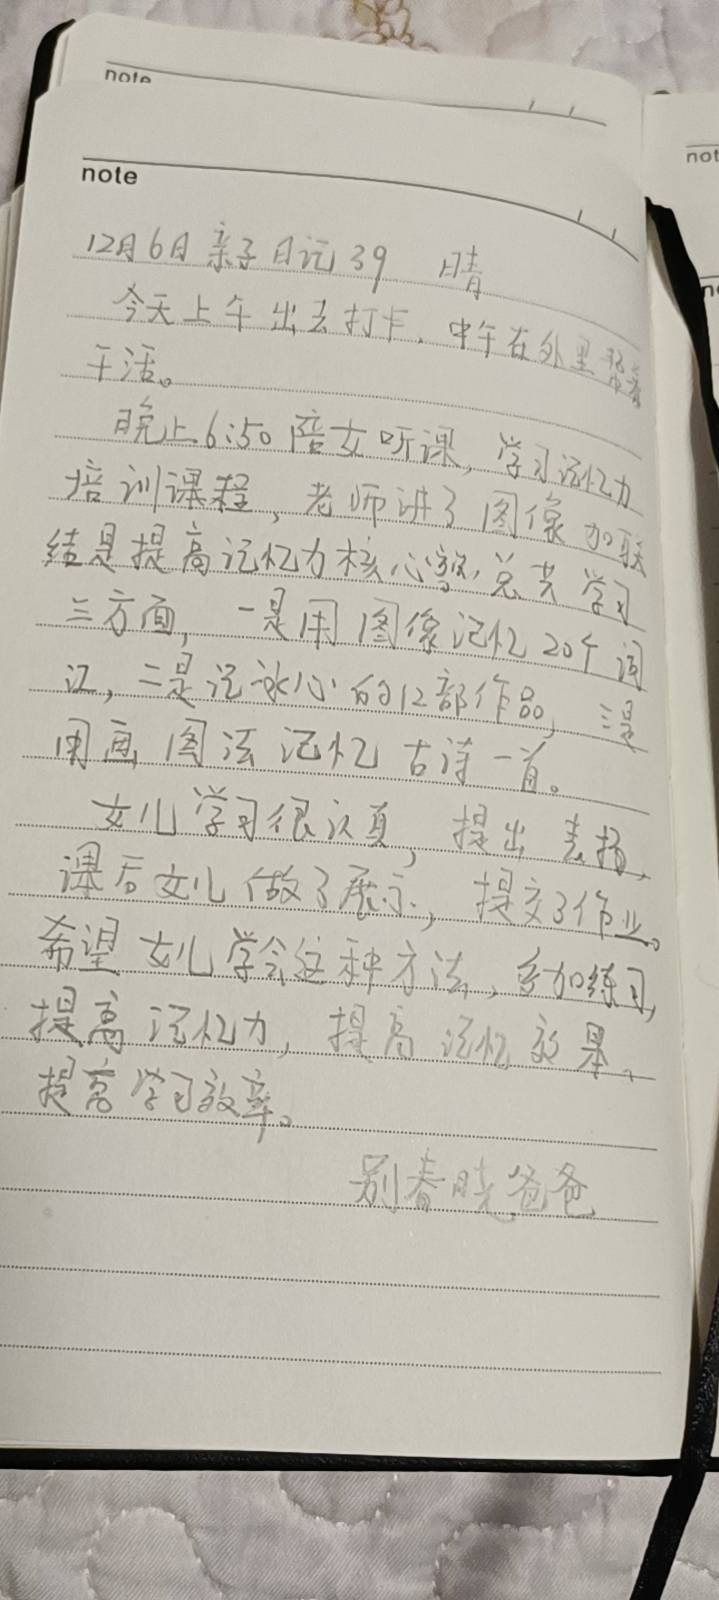 note
note
not
n
12月6日 亲子日记39 晴
今天上午出去打卡，中午在外里帮着
干活。
晚上6:50陪女听课，学习记忆力
培训课程，老师讲了图像加联
结是提高记忆力核心，总共学习
三方面，一是用图像记忆20个词
汇，二是记冰心的12部作品，三是
用画图法记忆古诗一首。
女儿学习很认真，提出表扬，
课后女儿做了展示，提交了作业。
希望女儿学会这种方法，多加练习，
提高记忆力，提高记忆效果、
提高学习效率。
别春晓爸爸